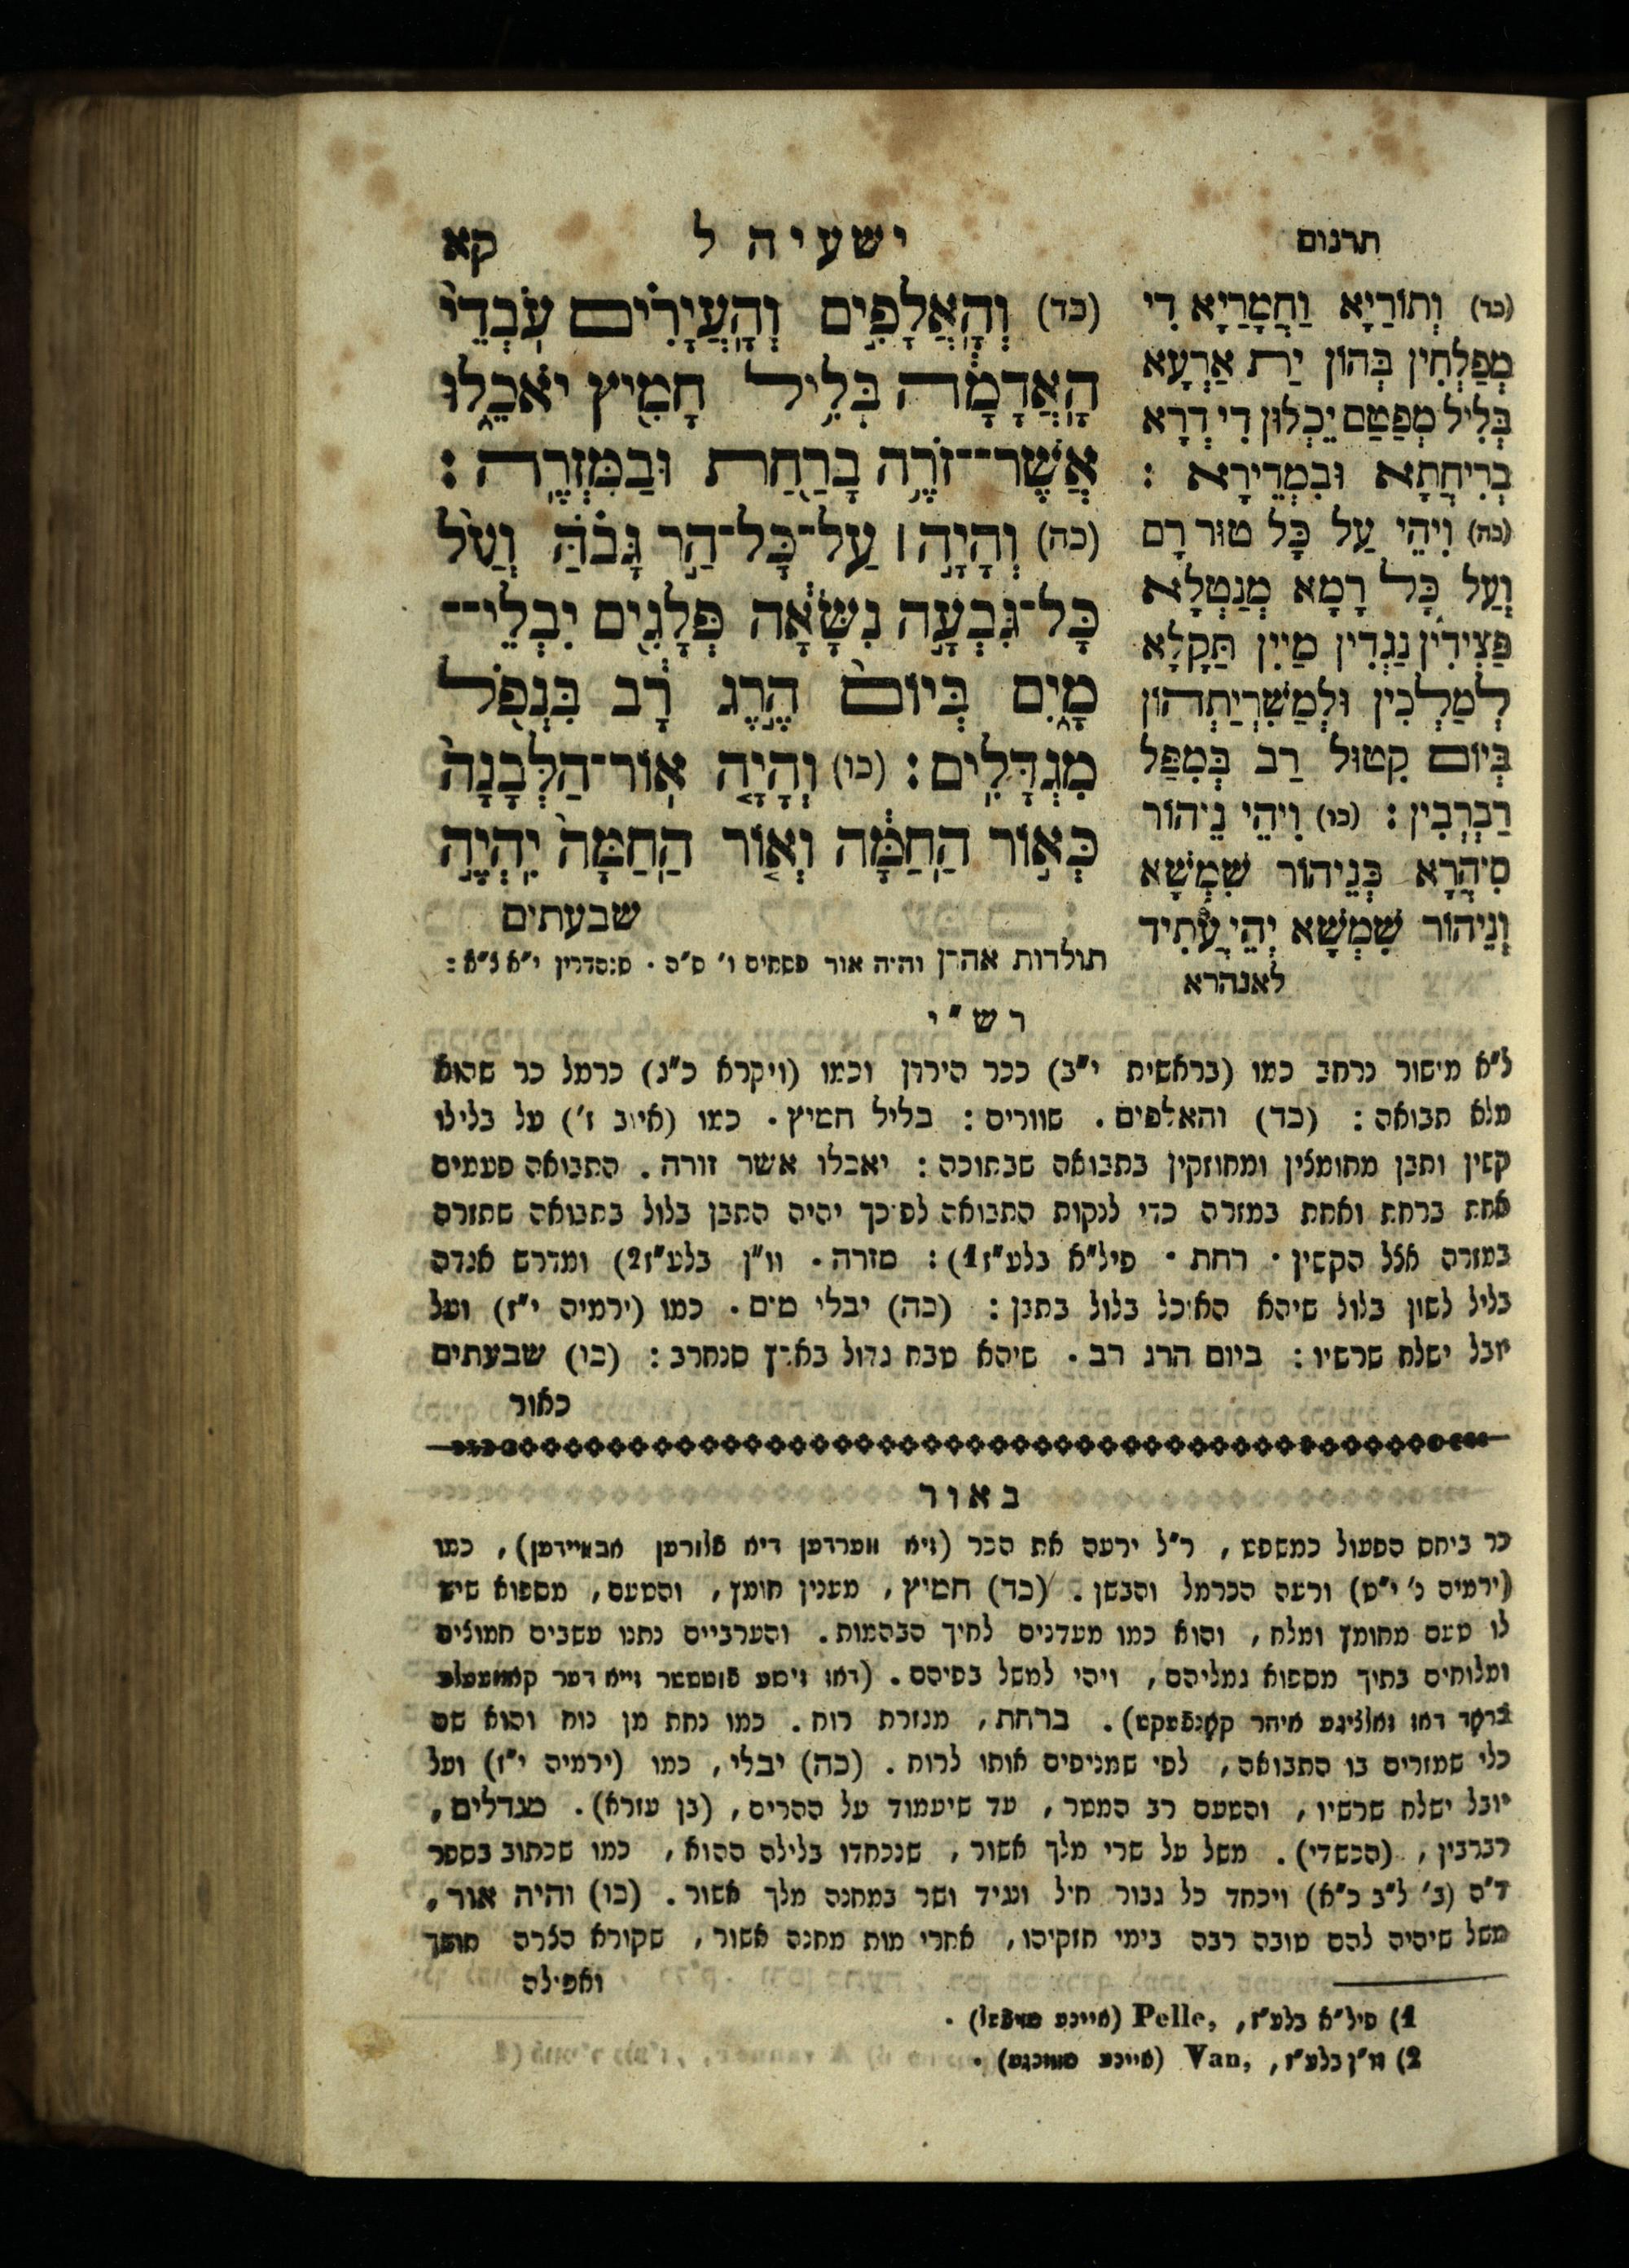 תרגום
ישעיה ל
קא
(כד) וְהָאֲלָפִים וְהָעֲיָרִים עֹבְדֵי
הָאֲדָמָה בְּלִיל חָמִיץ יֹאכֵלוּ
אֲשֶׁר־זֹרֶה בָרַחַת וּבַמִּזְרֶה:
(כה) וְהָיָה ׀ עַל־כָּל־הַר גָּבֹהַּ וְעַל
כָּל־גִּבְעָה נִשָּׂאָה פְּלָגִים יִבְלֵי־
מָיִם בְּיוֹם הֶרֶג רָב בִּנְפֹל
מִגְדָּלִים: (כו) וְהָיָה אוֹר־הַלְּבָנָה
כְּאוֹר הַחַמָּה וְאוֹר הַחַמָּה יִהְיֶה
שבעתים
תולדות אהרן והיה אור פסחים ו' ס"ח. סנהדרין י"א צ"א:
(כד) וְתוֹרַיָא וַחֲמָרַיָא דִי
מְפַלְחִין בְּהוֹן יַת אַרְעָא
בְּלִיל מְפַטַם יֵכְלוּן דִי דְרָא
בְרִיחֲתָא וּבִמְדֵירָא :
(כה) וִיהֵי עַל כָּל טוּר רָם
וְעַל כָּל רָמָא מְנַטְלָא
פַּצִידִין נַגְדִין מַיִין תַּקָלָא
לְמַלְכִין וּלְמַשִׁרְיַתְהוֹן
בְּיוֹם קִטוּל רַב בְּמִפַּל
רַבְרְבִין: (כו) וִיהֵי נֵיהוֹר
סִיהֲרָא כְּנֵיהוֹר שִׁמְשָׁא
וְנֵיהוֹר שִׁמְשָׁא יְהֵי עֲתִיד
לאנהרא
רש"י
ל"א מישור נרחב כמו (בראשית י"ב) ככר הירדן וכמו (ויקרא כ"ג) כרמל כר שהוא
מלא תבואה: (כד) והאלפים. שוורים: בליל חמיץ. כמו (איוב ו') על בלילו
קשין ותבן מחומצין ומחוזקין בתבואה שבתוכה: יאכלו אשר זורה. התבואה פעמים
אחת ברחת ואחת במזרה כדי לנקות התבואה לפיכך יהיה התבן בלול בתבואה שתזרה
במזרה אצל הקשין. רחת. פיל"א בלע"ז1): מזרה. וו"ן בלע"ז2) ומדרש אגדה
בליל לשון בלול שיהא האוכל בלול בתבן: (כה) יבלי מים. כמו (ירמיה י"ז) ועל
יובל ישלח שרשיו: ביום הרג רב. שיהא טבח גדול בארץ סנחרב: (כו) שבעתים
כאור
באור
כר ביחס הפעול כמשפט, ר"ל ירעה את הכר (זיא ווערדען דיא פלורען אבווײדען), כמו
(ירמיה נ' י"ט) ורעה הכרמל והבשן. (כד) חמיץ, מענין חומץ, והטעם, מספוא שיש
לו טעם מחומץ ומלח, והוא כמו מעדנים לחיך הבהמות. והערביים נתנו עשבים חמוצים
ומלוחים בתוך מספוא גמליהם, ויהי למשל בפיהם. (דאז זיסע פוטטער זייא דער קאמעעלע
בראָד דאז זאלציגע איהר קאָנפעקט). ברחת, מגזרת רוח. כמו נחת מן נוח והוא שם
כלי שמזרים בו התבואה, לפי שמניפים אותו לרוח. (כה) יבלי, כמו (ירמיה י"ז) ועל
יובל ישלח שרשיו, והטעם רב המטר, עד שיעמוד על ההרים, (בן עזרא). מגדלים,
רברבין, (הכשדי). משל על שרי מלך אשור, שנכחדו בלילה ההוא, כמו שכתוב בספר
ד"ה (ב' ל"ב כ"א) ויכחד כל גבור חיל ונגיד ושר במחנה מלך אשור. (כו) והיה אור,
משל שיהיה להם טובה רבה בימי חזקיהו, אחרי מות מחנה אשור, שקורא הצרה חושך
ואפילה
1) פיל"א בלע"ז, Pelle, (איינע שויפעל).
2) וו"ן בלע"ז, Van, (איינע שווינגע).